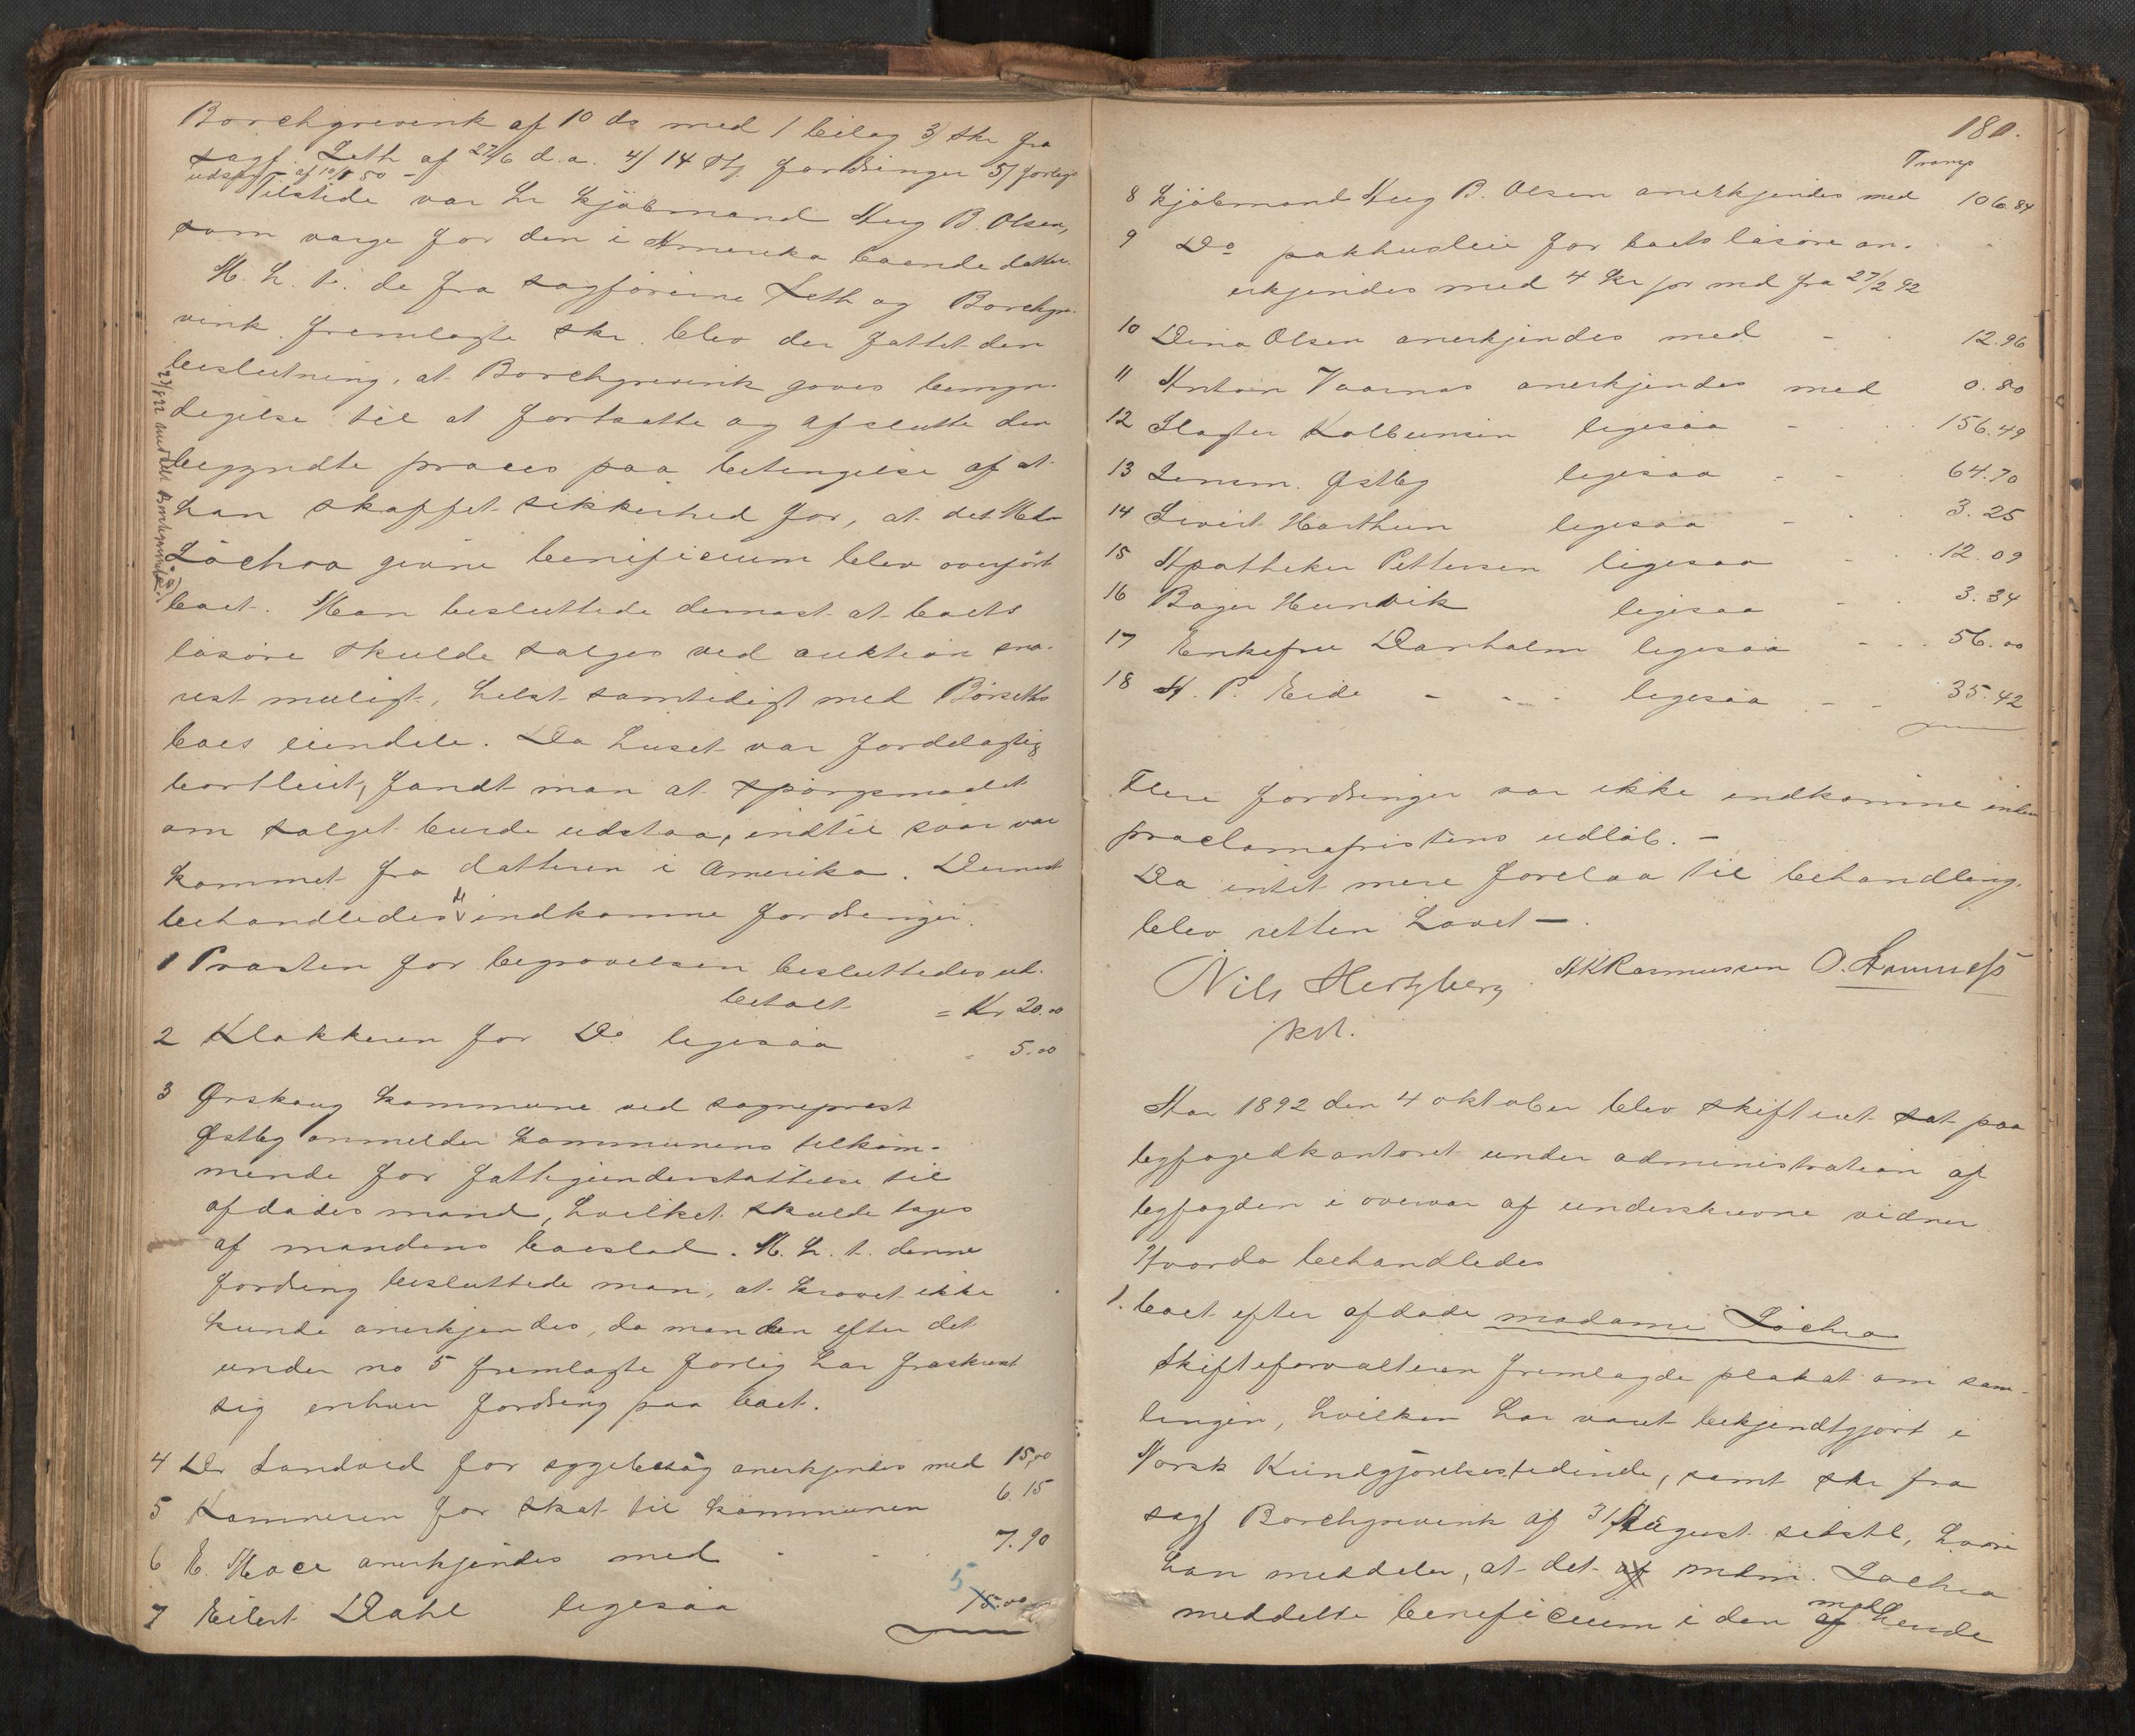 Borchgrevink af 10 ds med 1 bilag 3/ skr fra
sagf. Leth af 27/6 d.a. 4/ 14 stk fordringer 5/ forligs
udskrift af 10/8 50 –
Tilstede var hr kjöbmand Aug B. Olsen,
som værge for den i Amerika boende datter.
M. H. t. de fra sagförerne Leth og Borchgre-
vink fremlagte skr. blev der fattet den
beslutning, at Borchgrevink gaves bemyn-
digelse til at fortsætte og afslutte den
begyndte proces paa betingelse af at
han skaffet sikkerhed for, at det Mdm
Löchra givne beneficium blev overfört
boet. Man besluttede dernæst at boets
lösöre skulde sælges ved auktion sna-
rest muligt, helst samtidigt med Börseths
boes eiendele. Da huset var fordelagtig
bortleiet, fandt man at spörgsmaalet
om salget burde udstaa, indtil svar var
kommet fra datteren i Amerika. Dernæst
behandledes indkomne fordringer.
1 Præsten for begravelsen besluttedes ud-
betalt = Kr 20.00
2 Klokkeren for Do ligesaa - 5.00
3 Ørskoug kommune ved sognepræst
Østby anmelder kommunens tilkom-
mende for fattigunderstöttelse til
afdödes mand, hvilket skulde tages
af mandens boeslod. M. H. t. denne
fordring besluttede man, at kravet ikke
kunde anerkjendes, da manden efter det
under no 5 fremlagte forlig har fraskrevet
sig enhver fordring paa boet.
4 Dr Landved for sygebesög anerkjendes med 15,00
5 Kæmneren for skat til kommunen 6.15
6 E. Moce anerkjendes med - - . 7.90
7 Eilert Dahl ligesaa 5 15.00
27/8 92 meddelt Borchgrevink
180.
Transp
8 Kjöbmand Aug B. Olsen anerkjendes med 106.84
9 Do pakhusleie for boets lösöre an-
erkjendes med 4 Kr pr md fra 27/2 92
10 Dina Olsen anerkjendes med - - 12.96
11 Anton Vaarnes anerkjendes med 0.80
12 Slagter Kolbensen ligesaa - - 156.49
13 Lensm. Østby ligesaa - - 64.70
14 Sivert Harthun ligesaa - . 3.25
15 Apotheker Pettersen ligesaa - . 12.09
16 Bager Hunvik ligesaa - . 3.34
17 Enkefru Danholm ligesaa - . . 56.00
18 A. P. Eide - - - - ligesaa - - 35.42
Flere fordringer var ikke indkomne inden
proclamafristens udlöb. –
Da intet mere forelaa til behandling
blev retten hævet –
Nils Hertzberg. AKRasmussen
kst.
Aar 1892 den 4 oktober blev skifteret sat paa
byfogedkontoret under administration af
byfogden i overvær af underskrevne vidner
Hvorda behandledes
1. boet efter afdöde madame Löchra
Skifteforvalteren fremlagde plakat om sam-
lingen, hvilken har været bekjendtgjort i
Norsk Kundgjörelsestidende, samt skr fra
sagf Borchgrevink af 31 August sidstl, hvori
han meddeler, at det af mdm. Löchra
meddelte beneficium i den af mod hende